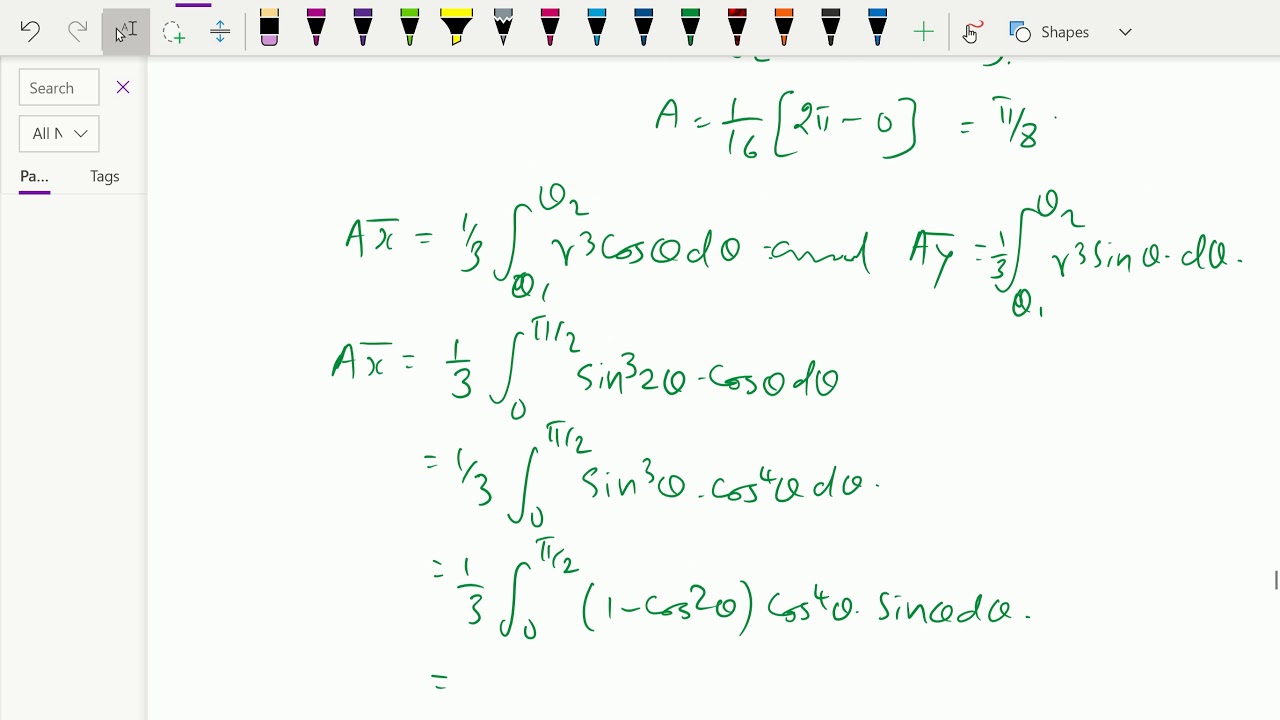 Shapes
Search
All N
Pa... Tags
A = 1/16 [2π - 0] = π/8.
Ax̅ = 1/3 ∫θ₁^θ₂ r³cosθdθ and Ay̅ = 1/3 ∫θ₁^θ₂ r³sinθ·dθ.
Ax̅ = 1/3 ∫₀^π/2 sin³2θ·cosθdθ
= 1/3 ∫₀^π/2 sin³θ·cos⁴θdθ.
= 1/3 ∫₀^π/2 (1-cos²θ)cos⁴θ·sinθdθ.
=